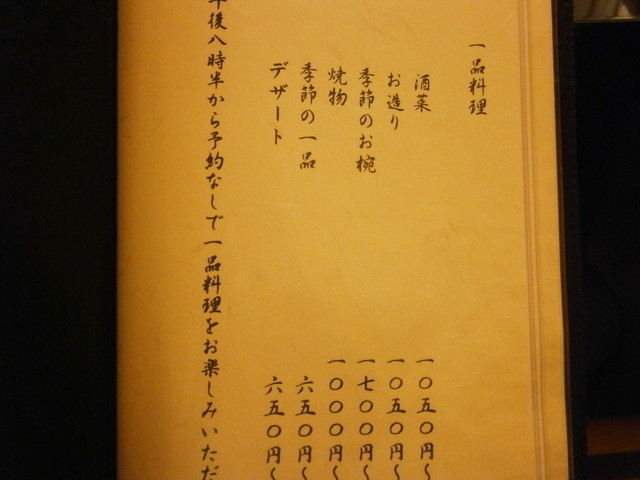 一品料理
酒菜 一〇五〇円〜
お造り 一〇五〇円〜
季節のお椀 一七〇〇円〜
焼物 一〇〇〇円〜
季節の一品 六五〇円〜
デザート 六五〇円〜
午後八時半から予約なしで一品料理をお楽しみいただ